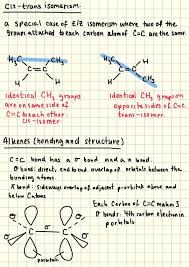 Cis-trans isomerism
a special case of E/Z isomerism where two of the
groups attached to each carbon atom of C=C are the same.
H₃C CH₃ H₃C H
C=C C=C
H H H CH₃
identical CH₃ groups identical CH₃ groups on
are on same side opposite sides of C=C
of C=C to each other trans-isomer.
cis-isomer
Alkenes (bonding and structure)
C=C bond has a σ bond and a π bond.
σ bond: direct, end to end overlap of orbitals between the
bonding atoms.
π bond: sideways overlap of adjacent p-orbitals above and
below C atoms
Each Carbon of C=C makes 3
σ bonds: 4th carbon electron in
p orbitals.
C σ C
p orbitals